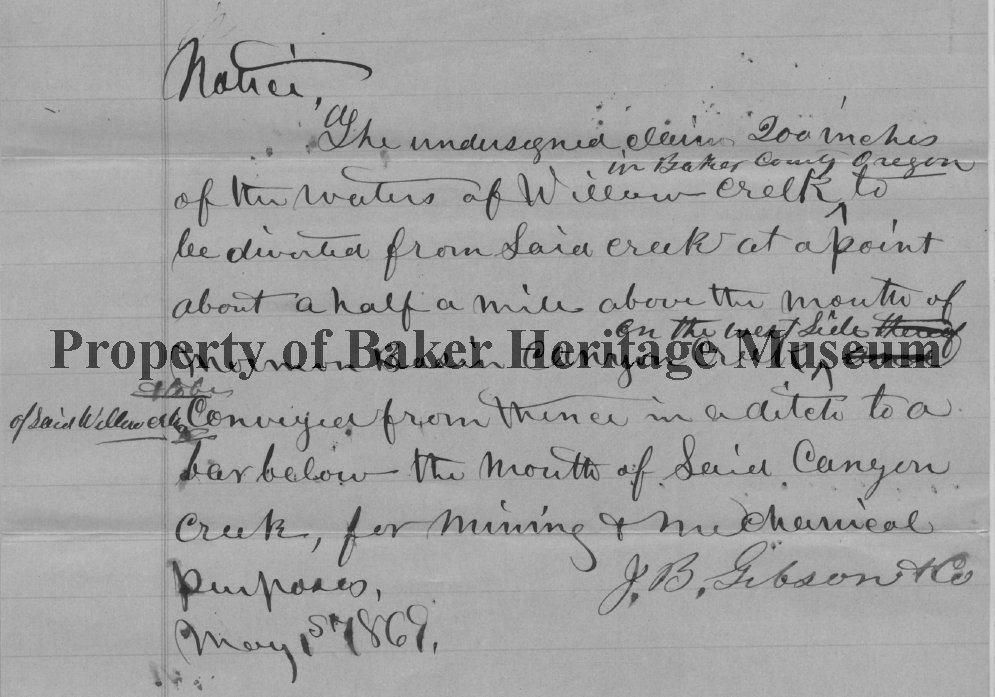 Notice,
The undersigned claim 200 inches
in Baker County Oregon
of the waters of Willow Creek to
be diverted from Said creek at a point
about a half a mile above the mouth of
on the west Side
Property of Baker Heritage Museum
Mormon Basin Canyon Creek,
& to be
of Said Willow Creek
Conveyed from thence in a ditch to a
bar below the mouth of Said Canyon
Creek, for Mining & Mechanical
purposes,
J. B. Gibson & Co
May 1st 1869.